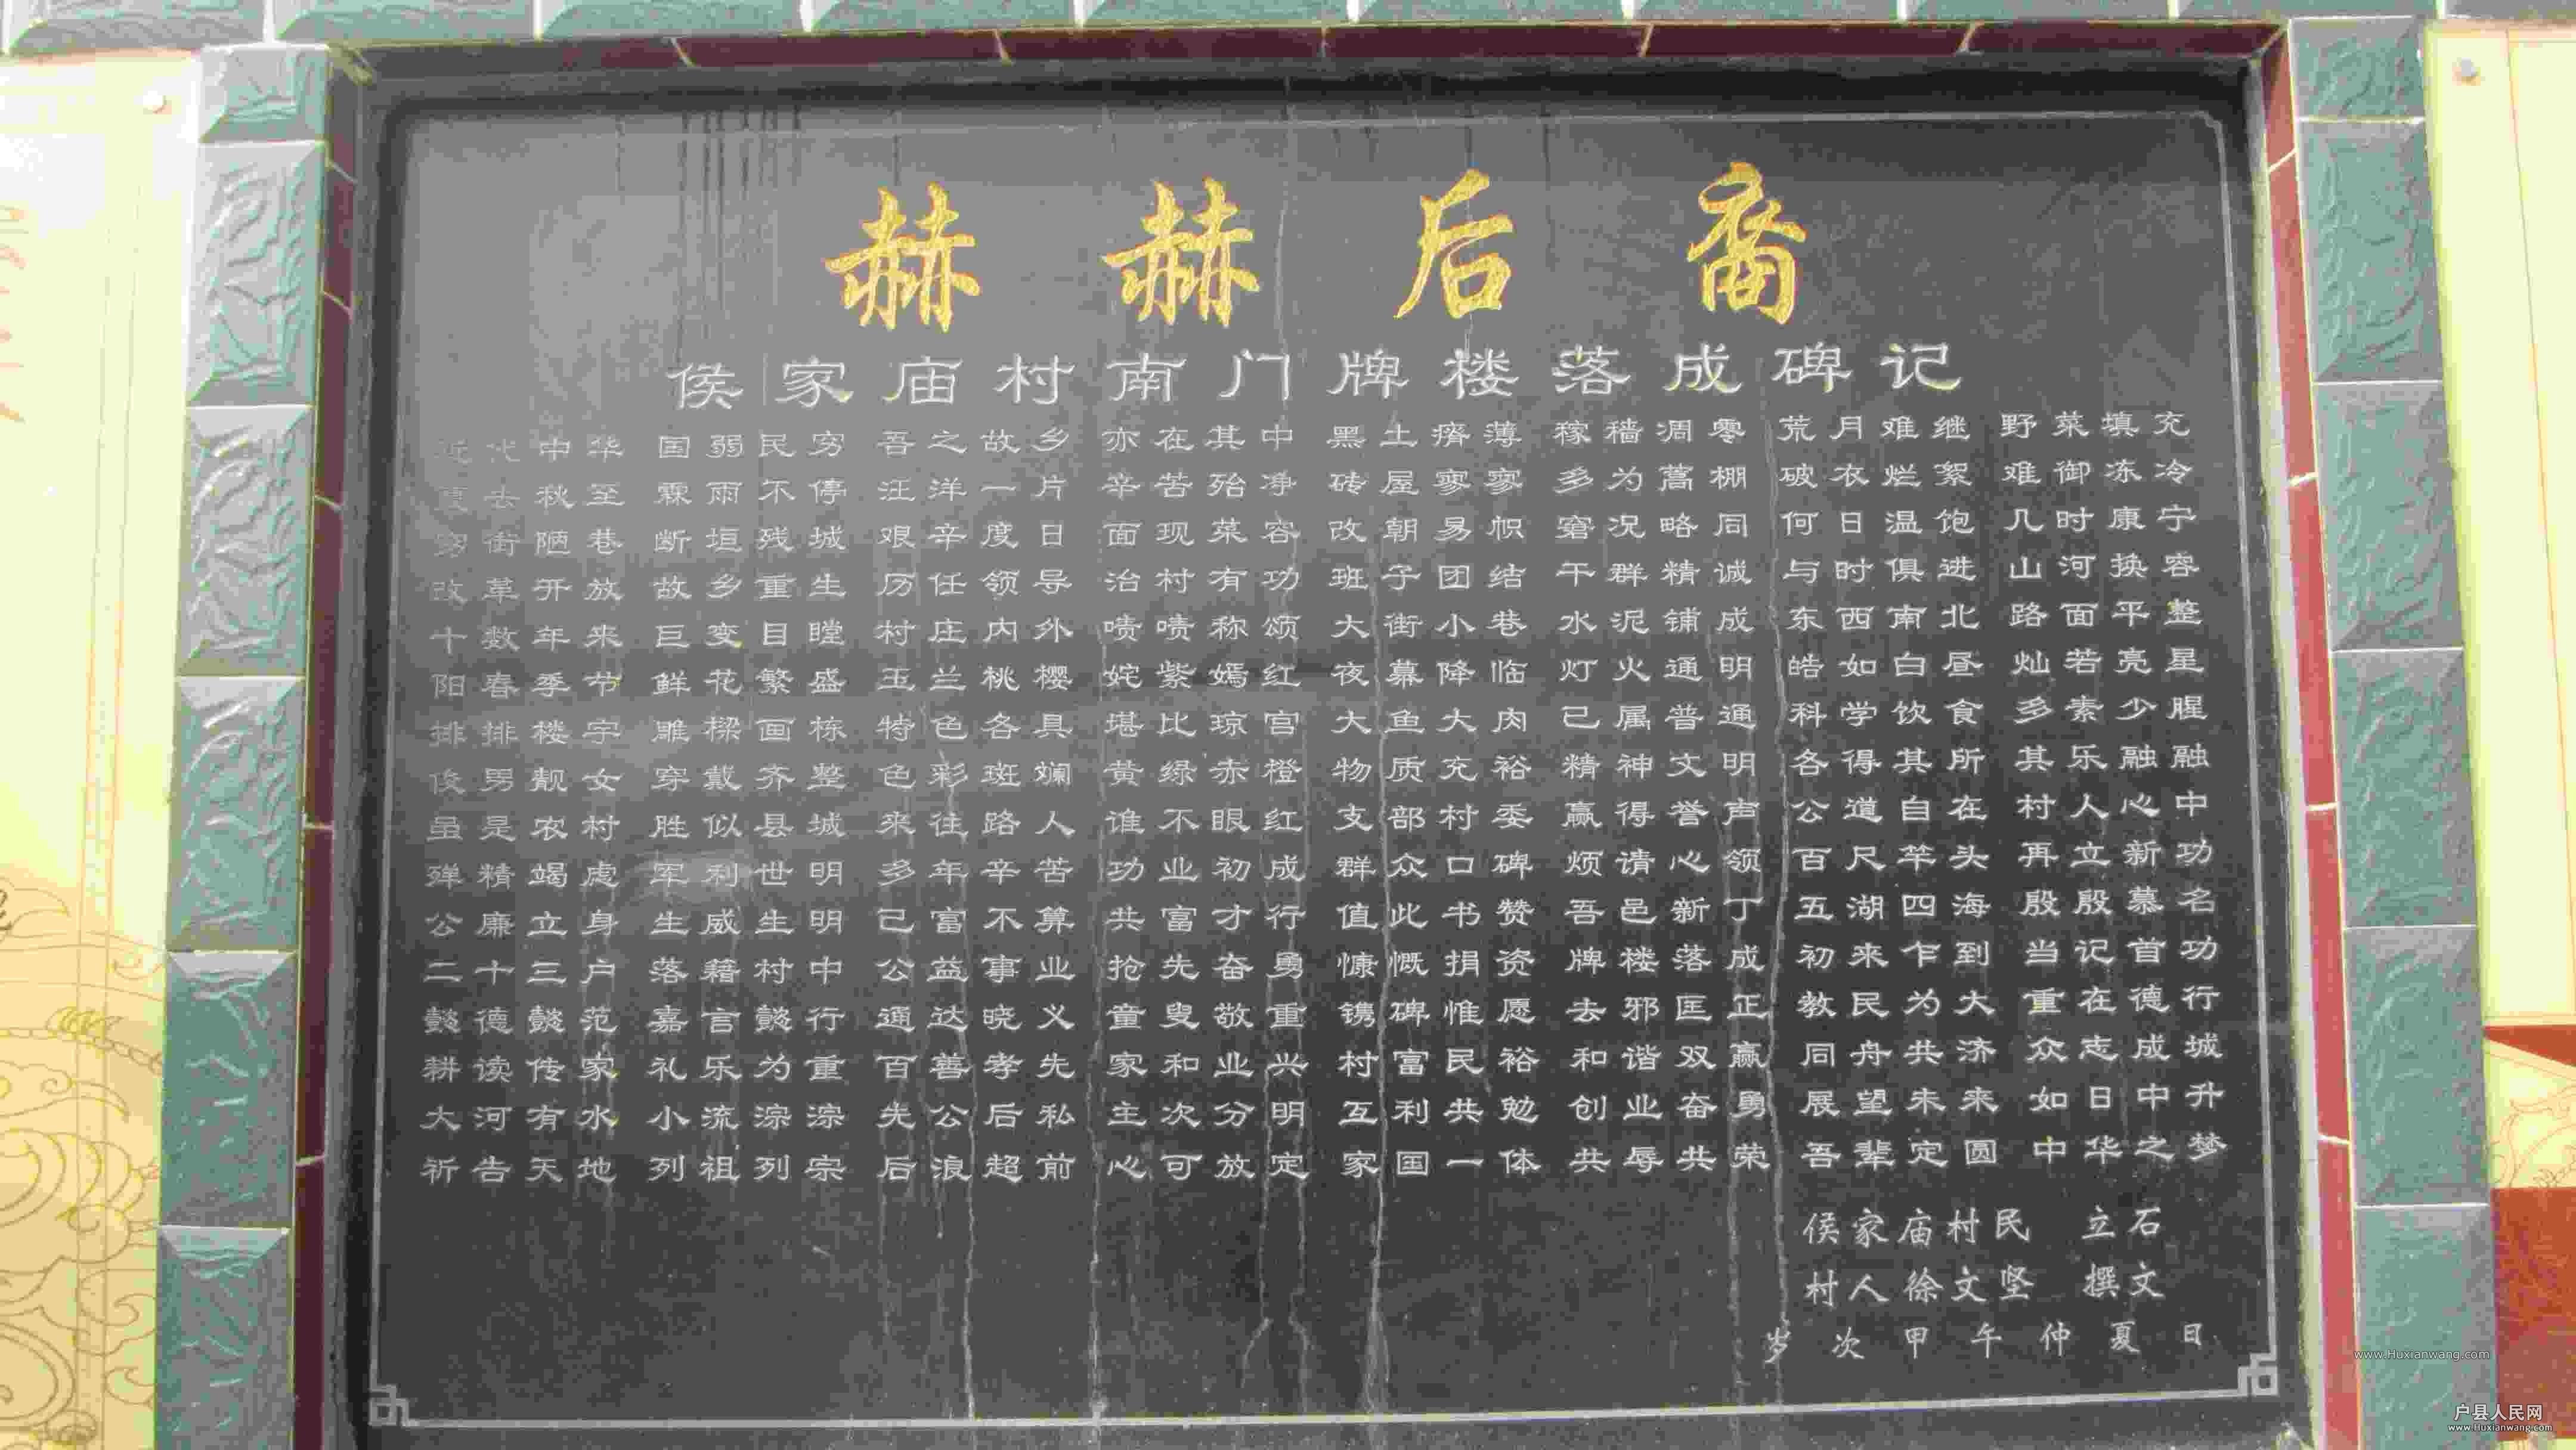 赫赫后裔
侯家庙村南门牌楼落成碑记
近代中华 国弱民穷 吾之故乡 亦在其中 黑土瘠薄 稼穑凋零 荒月难继 野菜填充
夏去秋至 霖雨不停 汪洋一片 辛苦殆净 砖屋寥寥 多为蒿棚 破衣烂絮 难御冻冷
穷街陋巷 断垣残城 艰辛度日 面现菜容 改朝易帜 窘况略同 何日温饱 几时康宁
改革开放 故乡重生 历任领导 治村有功 班子团结 干群精诚 与时俱进 山河换容
十数年来 巨变目瞠 村庄内外 啧啧称颂 大街小巷 水泥铺成 东西南北 路面平整
阳春季节 鲜花繁盛 玉兰桃樱 姹紫嫣红 夜幕降临 灯火通明 皓如白昼 灿若亮星
排排楼宇 雕樑画栋 特色各具 堪比琼宫 大鱼大肉 已属普通 科学饮食 多素少腥
俊男靓女 穿戴齐整 色彩斑斓 黄绿赤橙 物质充裕 精神文明 各得其所 其乐融融
虽是农村 胜似县城 来往路人 谁不眼红 支部村委 赢得誉声 公道自在 村人心中
殚精竭虑 军利世明 多年辛苦 功业初成 群众口碑 烦请心领 百尺竿头 再立新功
公廉立身 生威生明 己富不算 共富才行 值此书赞 吾邑新丁 五湖四海 殷殷慕名
二十三户 落籍村中 公益事业 抢先奋勇 慷慨捐资 牌楼落成 初来乍到 当记首功
懿德懿范 嘉言懿行 通达晓义 童叟敬重 镌碑惟愿 去邪匡正 教民为大 重在德行
耕读传家 礼乐为重 百善孝先 家和业兴 村富民裕 和谐双赢 同舟共济 众志成城
大河有水 小流淙淙 先公后私 主次分明 互利共勉 创业奋勇 展望未来 如日中升
祈告天地 列祖列宗 后浪超前 心可放定 家国一体 共辱共荣 吾辈定圆 中华之梦
侯家庙村民 立石
村人徐文坚 撰文
岁次甲午仲夏日
www.Huxianwang.com
户县人民网
www.Huxianwang.com